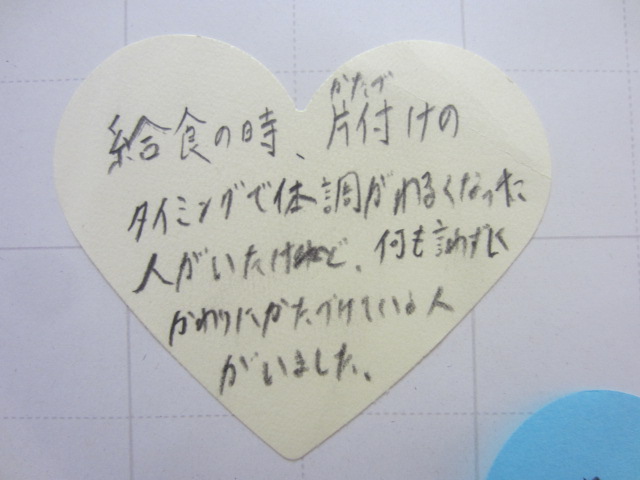 かたづ
給食の時、片付けの
タイミングで体調がわるくなった
人がいたけれど、何も言わずに
かわりにかたづけている人
がいました。